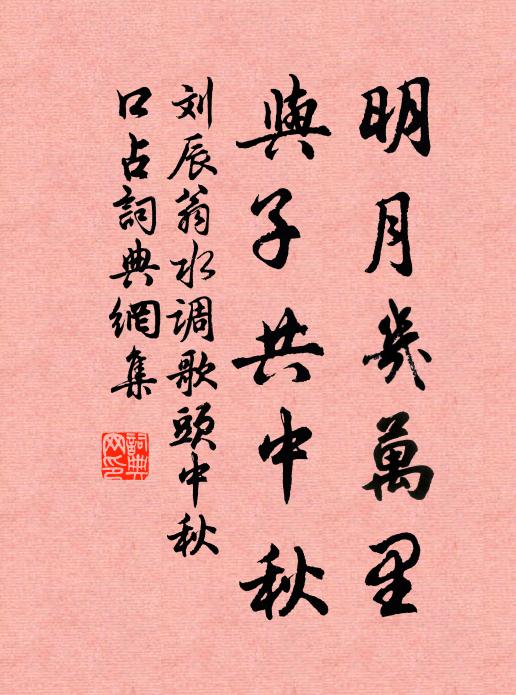 明月幾萬里
與子共中秋
刘辰翁水调歌頭中秋
口占詞典網集
詞典
网印